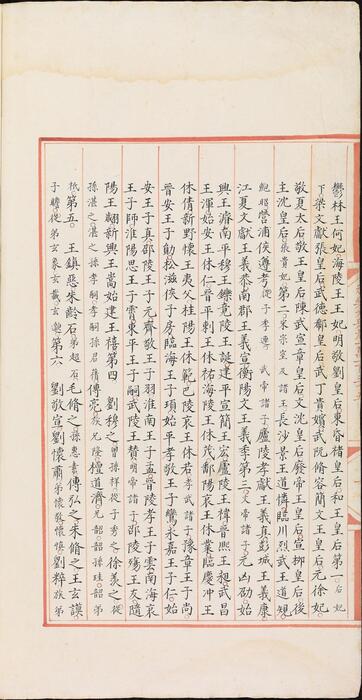 鬱林王何妃海陵王王妃明敬劉皇后東昏褚皇后和王皇后第一后妃
下梁文獻張皇后武德郗皇后武丁貴嬪武阮脩容簡文王皇后元徐妃
敬夏太后敬王皇后陳武宣章皇后文沈皇后廢帝王皇后宣柳皇后後
主沈皇后張貴妃第二宋宗室及諸王長沙景王道憐臨川烈武王道規
鮑照營浦侯遵考從子季連武帝諸子廬陵孝獻王義真彭城王義康
江夏文獻王義恭南郡王義宣衡陽文王義季第三文帝諸子元凶劭始
興王濬南平穆王鑠竟陵王誕建平宣簡王宏廬陵王禕晉熙王昶武昌
王渾始安王休仁晉平剌王休祐海陵王休茂鄱陽哀王休業臨慶沖王
休倩新野懷王夷父桂陽王休範巴陵哀王休若孝武諸子豫章王子尚
晉安王子勛松滋侯子房臨海王子頊始平孝敬王子鸞永嘉王子仁始
安王子真邵陵王子元齊敬王子羽淮南王子孟晉陵孝王子雲南海哀
王子師淮陽思王子霄東平王子嗣武陵王贊明帝諸子邵陵殤王友隨
陽王翽新興王嵩始建王禧第四劉穆之曾孫祥從子秀之徐羨之從
孫湛之湛之孫孝嗣孝嗣孫君蒨傅亮族兄隆檀道濟兄韶韶孫珪韶弟
祗第五王鎮惡朱齡石弟超石毛脩之孫惠素傅弘之朱脩之王玄謨
子瞻從弟玄象玄載玄邈第六劉敬宣劉懷肅弟懷敬懷慎劉粹族弟